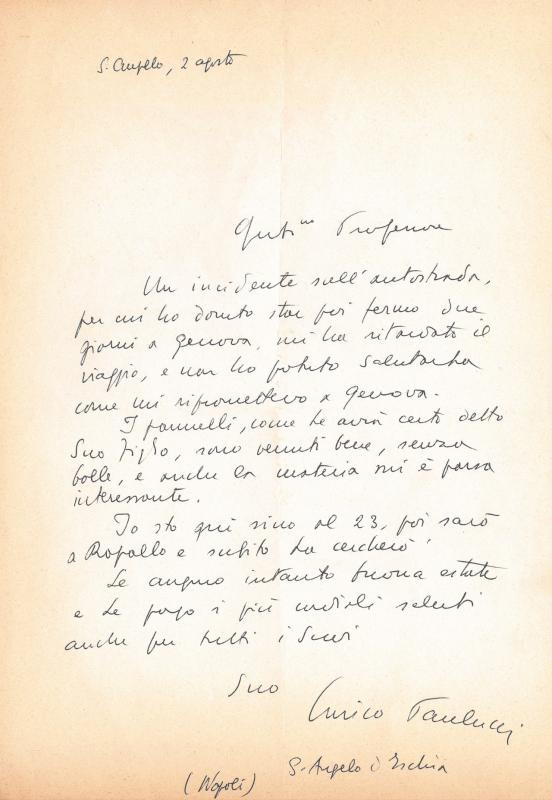 S. Angelo, 2 agosto
Gent.mo Professore
Un incidente sull'autostrada,
per cui ho dovuto star poi fermo due
giorni a Genova, mi ha ritardato il
viaggio, e non ho potuto salutarLa
come mi ripromettevo a Genova.
I pannelli, come Le avrà certo detto
Suo figlio, sono venuti bene, senza
bolle, e anche la materia mi è parsa
interessante.
Io sto qui sino al 23, poi sarò
a Rapallo e subito La cercherò
Le auguro intanto buona estate
e Le porgo i più cordiali saluti
anche per tutti i Suoi
Suo
Enrico Paulucci
S. Angelo d'Ischia
(Napoli)